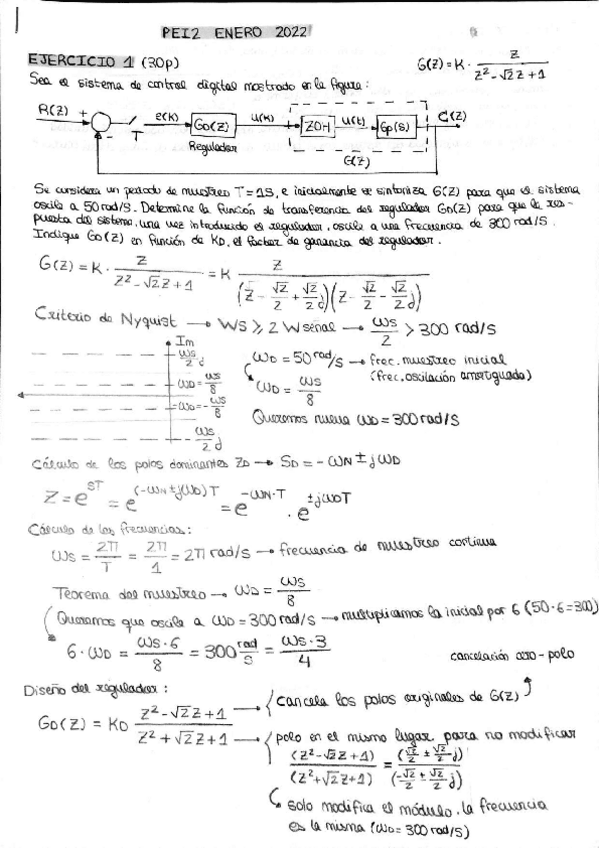 PEI2 ENERO 2022
EJERCICIO 1 (30p)
G(z) = K · z / (z² - √2 z + 1)
Sea el sistema de control digital mostrado en la figura:
R(z) + e(k) GD(z) u(k) ZOH u(t) Gp(s) C(z)
- T Regulador G(z)
Se considera un periodo de muestreo T = 1s, e inicialmente se sintoniza G(z) para que el sistema
oscile a 50 rad/s. Determine la función de transferencia del regulador GD(z) para que la res-
puesta del sistema, una vez introducido el regulador, oscile a una frecuencia de 300 rad/s.
Indique GD(z) en función de KD, el factor de ganancia del regulador.
G(z) = K · z / (z² - √2 z + 1) = K z / ((z - √2/2 + √2/2 j)(z - √2/2 - √2/2 j))
Criterio de Nyquist → Ws ≥ 2 Wseñal → Ws/2 > 300 rad/s
Im
Ws/2 j
WD = Ws/8
-WD = -Ws/8
Ws/2 j
WD = 50 rad/s → frec. muestreo inicial
(frec. oscilación amortiguada)
WD = Ws/8
Queremos nueva WD = 300 rad/s
Cálculo de los polos dominantes ZD → SD = -WN ± jWD
Z = e^ST = e^(-WN ± jWD)T = e^-WN·T · e^±jWDT
Cálculo de las frecuencias:
Ws = 2π/T = 2π/1 = 2π rad/s → frecuencia de muestreo continua
Teorema del muestreo → WD = Ws/8
Queremos que oscile a WD = 300 rad/s → multiplicamos la inicial por 6 (50·6=300)
6·WD = Ws·6/8 = 300 rad/s = Ws·3/4
cancelación cero-polo
Diseño del regulador:
GD(z) = KD (z² - √2 z + 1) / (z² + √2 z + 1)
→ cancela los polos originales de G(z)
→ polo en el mismo lugar para no modificar
(z² - √2 z + 1) / (z² + √2 z + 1) = (√2/2 ± √2/2 j) / (-√2/2 ± √2/2 j)
solo modifica el módulo. la frecuencia
es la misma (WD = 300 rad/s)